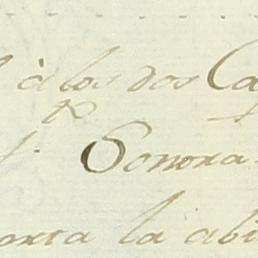 à los dos Ca
Sonora
orta la abi